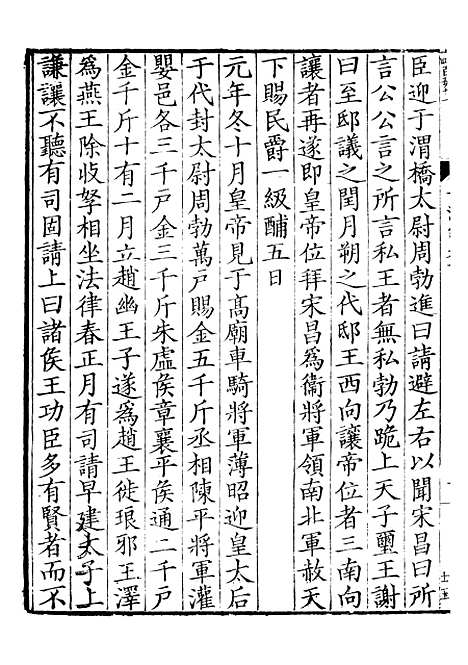 臣迎于渭橋太尉周勃進曰請避左右以聞宋昌曰所
言公公言之所言私王者無私勃乃跪上天子璽王謝
曰至邸議之閏月朔之代邸王西向讓帝位者三南向
讓者再遂即皇帝位拜宋昌爲衞將軍領南北軍赦天
下賜民爵一級酺五日
元年冬十月皇帝見于高廟車騎將軍薄昭迎皇太后
于代封太尉周勃萬戸賜金五千斤丞相陳平將軍灌
嬰邑各三千戸金三千斤朱虛侯章襄平侯通二千戸
金千斤十有二月立趙幽王子遂爲趙王徙琅邪王澤
爲燕王除收孥相坐法律春正月有司請早建太子上
謙讓不聽有司固請上曰諸侯王功臣多有賢者而不